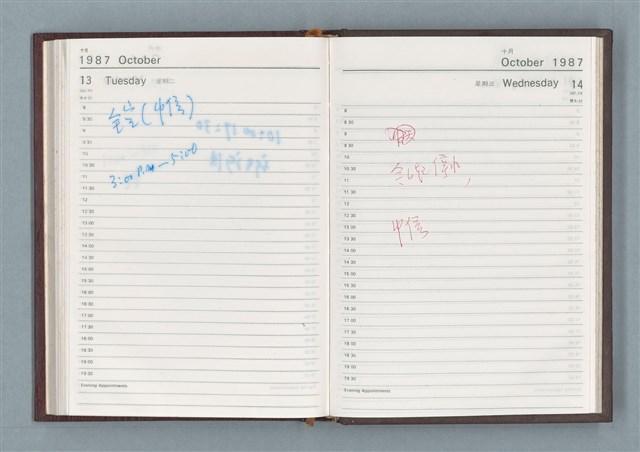 十月
1987 October
13 Tuesday 星期二
8
(中信)
8 30
9
9 30
10
3:00 P.M — 5:00
10 30
11
11 30
12 00
12 30
13 00
13 30
14 00
14 30
15 00
15 30
16 00
16 30
17 00
17 30
18 00
18 30
19 00
19 30
Evening Appointments
十月
October 1987
星期三 Wednesday 14
8
8 30
9
9 30
10
10 30
11
11 30
12 00
12 30
13 00
中信
13 30
14 00
14 30
15 00
15 30
16 00
16 30
17 00
17 30
18 00
18 30
19 00
19 30
Evening Appointments